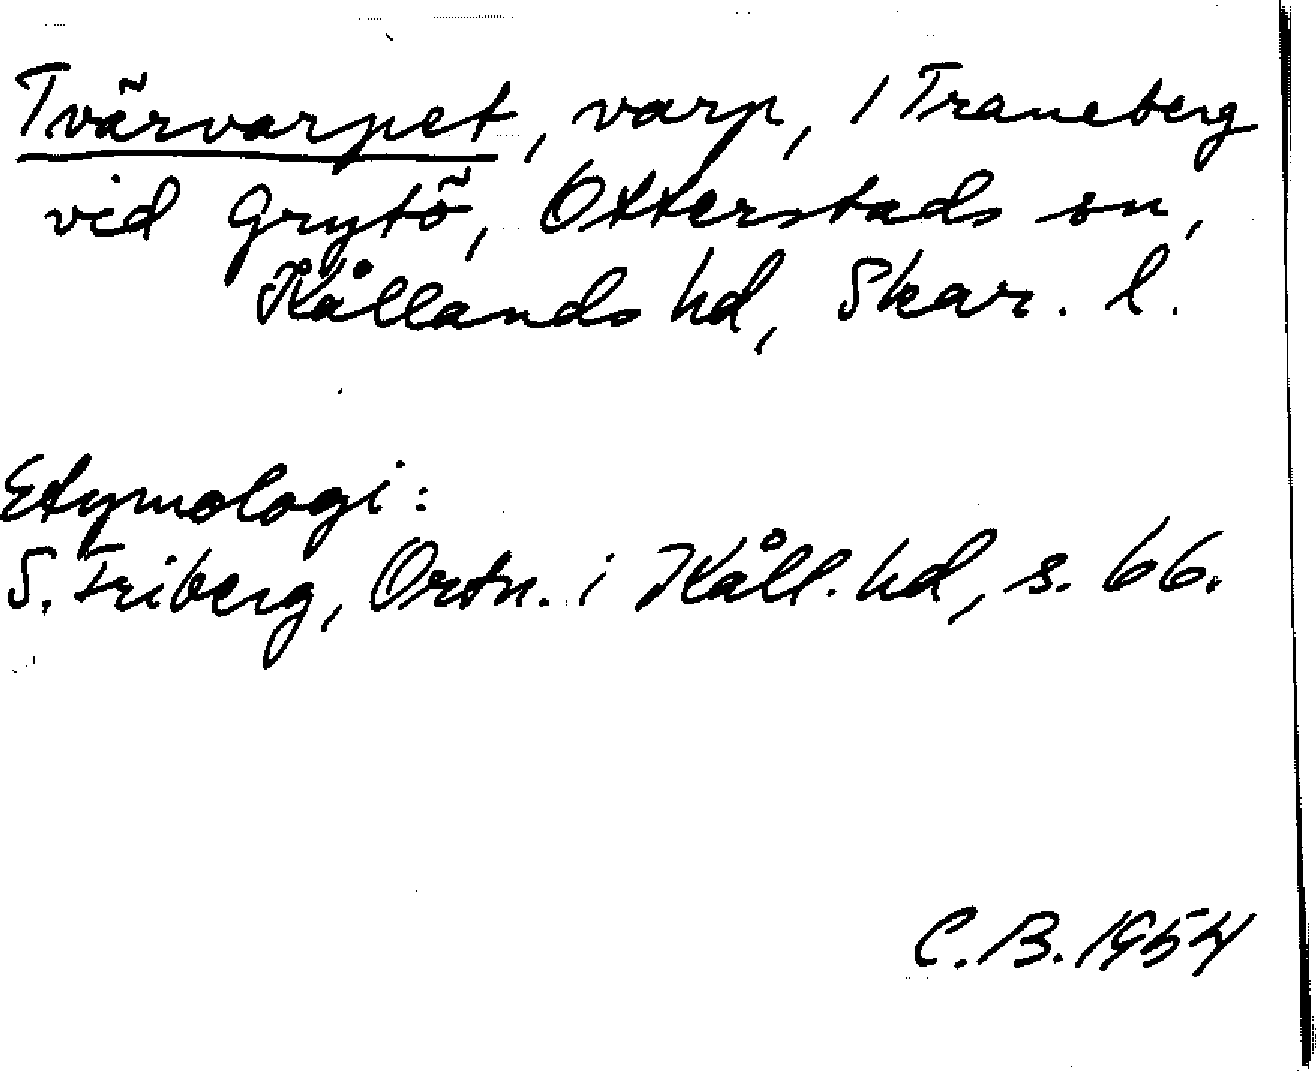 Tvärvarpet, varp, / Traneberg
vid Grytö, Otterstads sn,
Kållands hd, Skar. l.
Etymologi:
S. Friberg, Ortn. i Kåll. hd, s. 66.
C. B. 1954